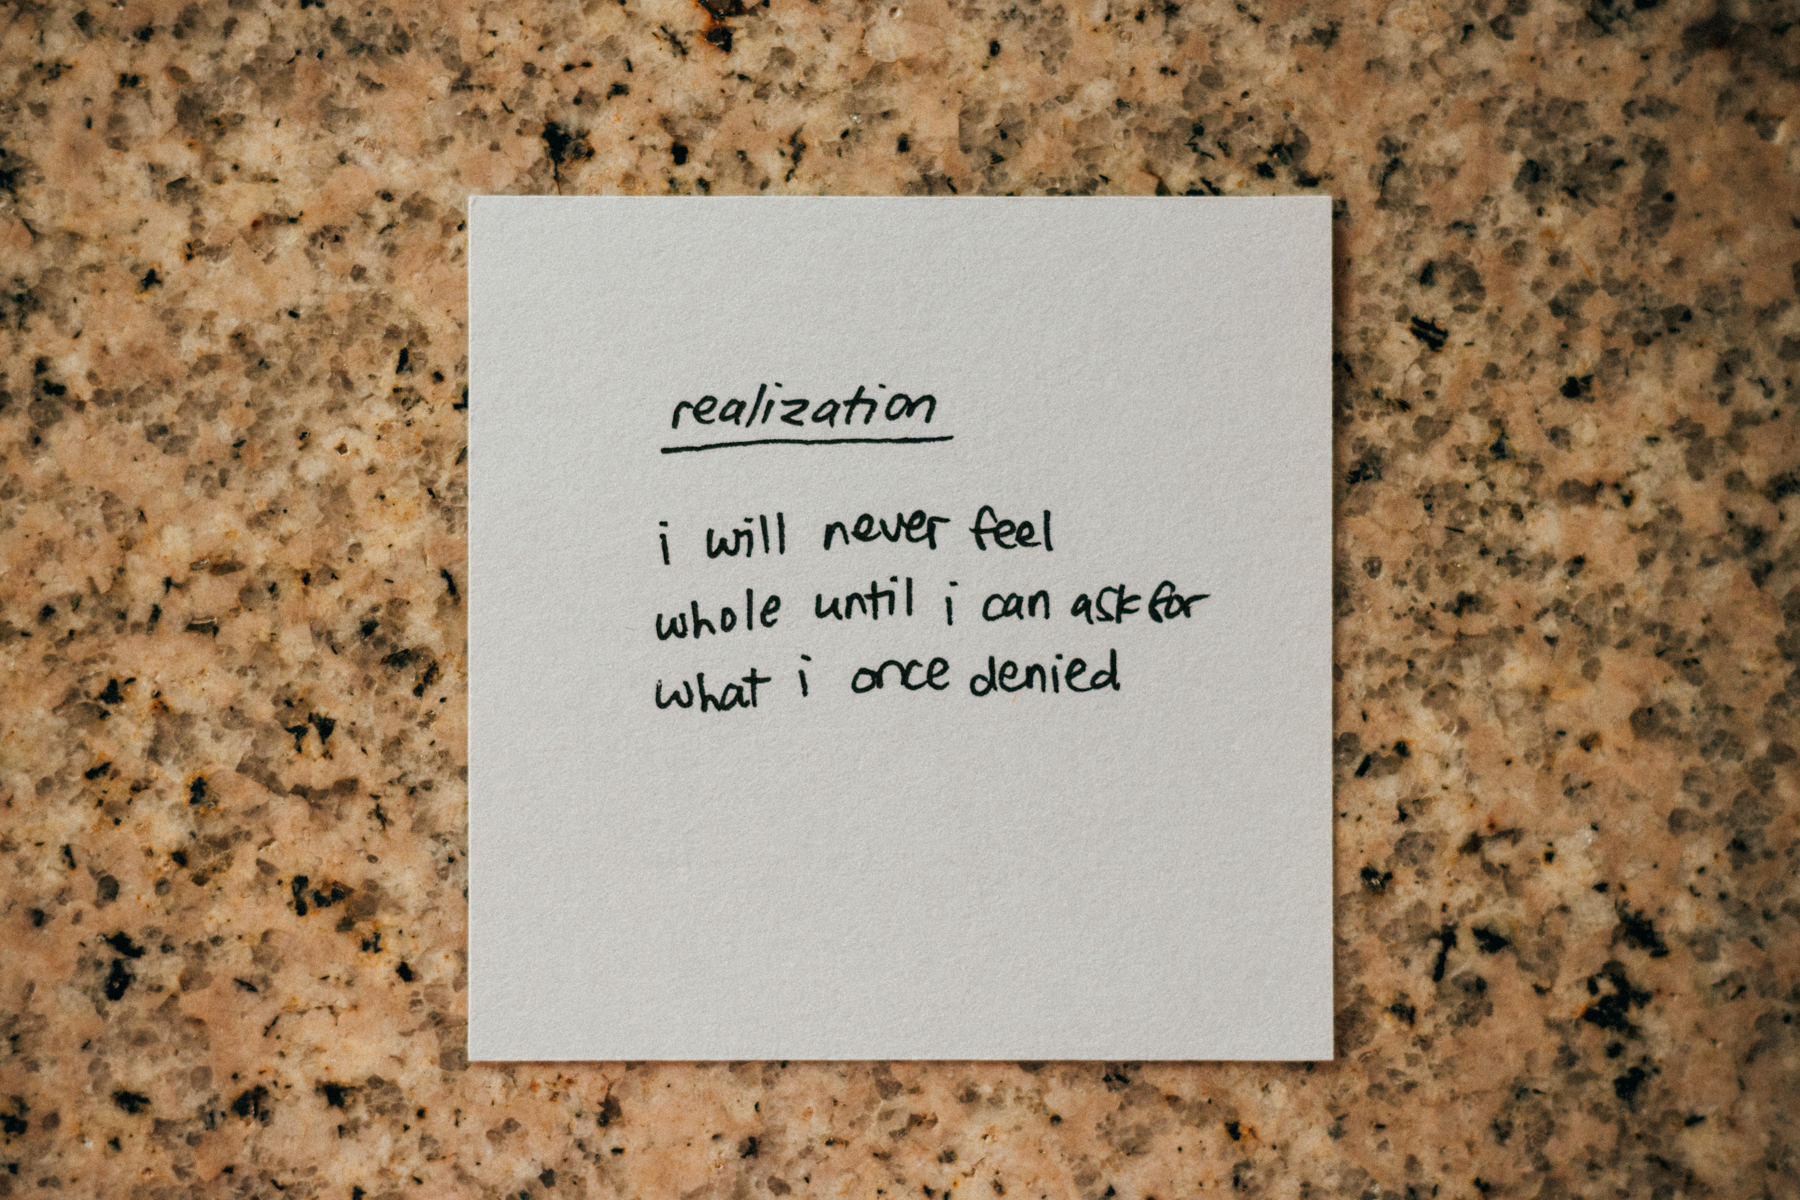 realization
i will never feel
whole until i can ask for
what i once denied